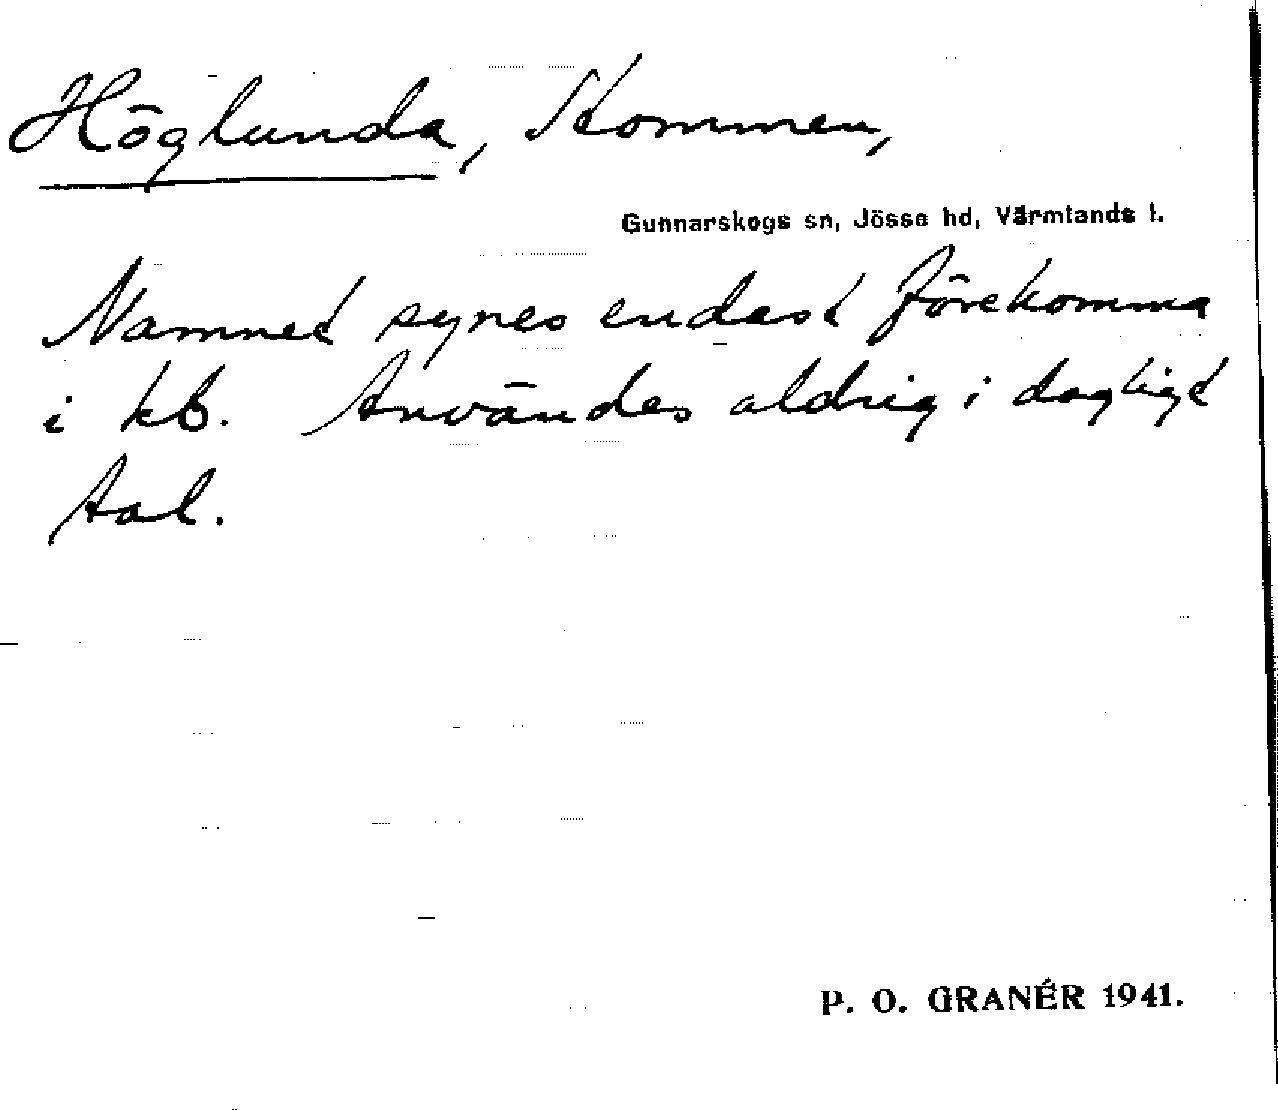 Höglunda, Stommen,
Gunnarskogs sn, Jösse hd, Värmlands l.
Namnet synes endast förekomma
i kb. Användes aldrig i dagligt
tal.
P. O. GRANÉR 1941.